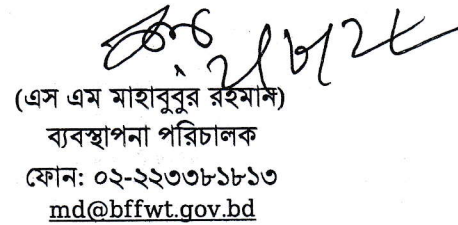 (এস এম মাহাবুবুর রহমান)
ব্যবস্থাপনা পরিচালক
ফোন: ০২-২২৩৩৮১৮১৩
md@bffwt.gov.bd